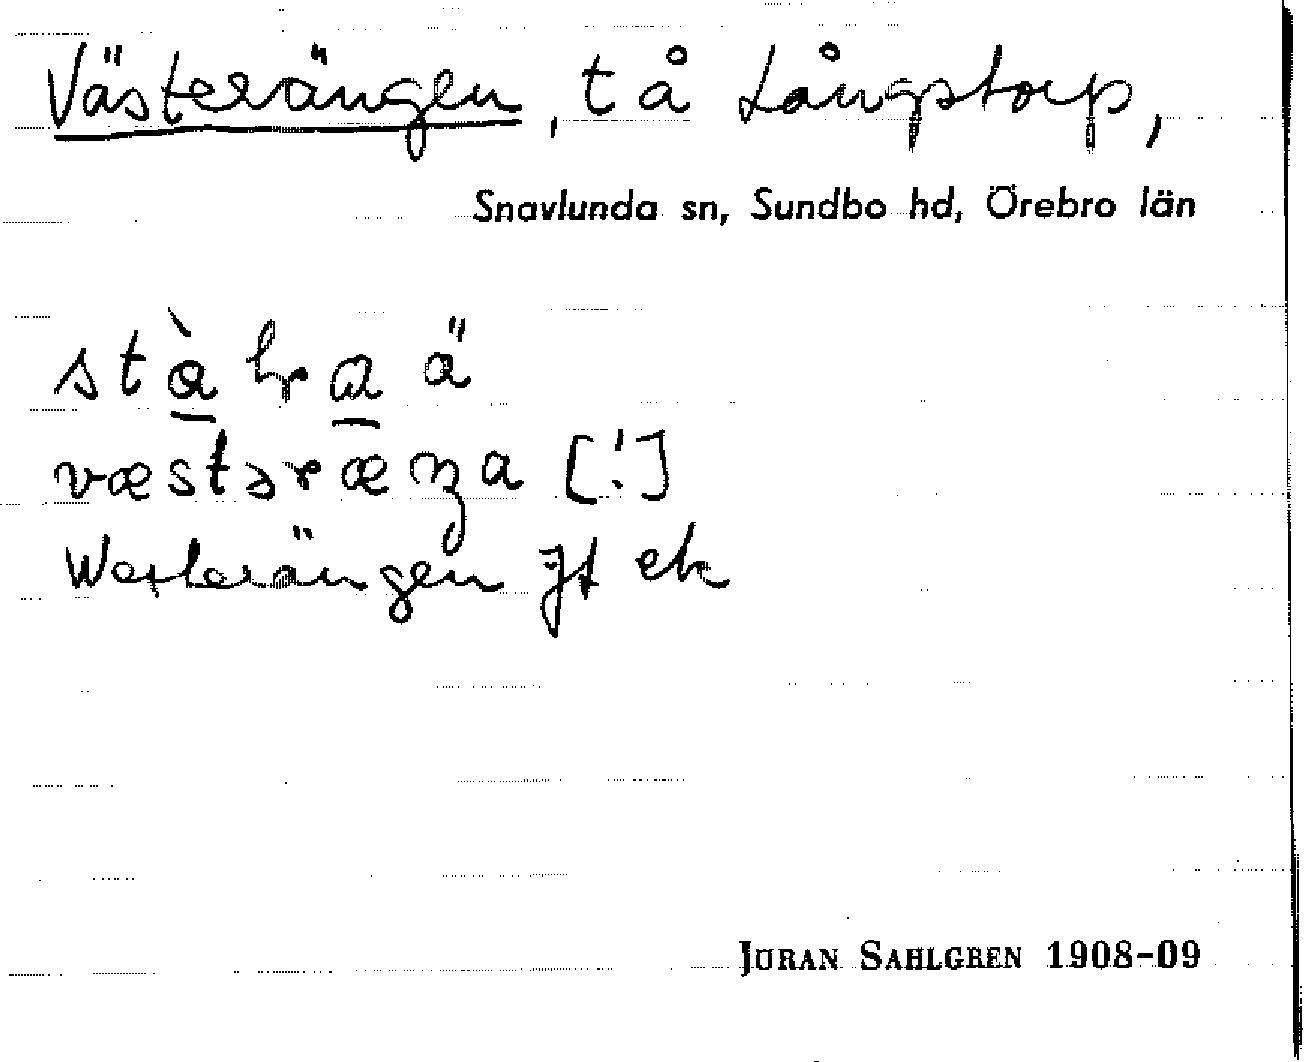 Västerängen, tå Långstorp,
Snavlunda sn, Sundbo hd, Örebro län
væstəræŋa [!]
Westerängen Jt ek
JÖRAN SAHLGREN 1908-09